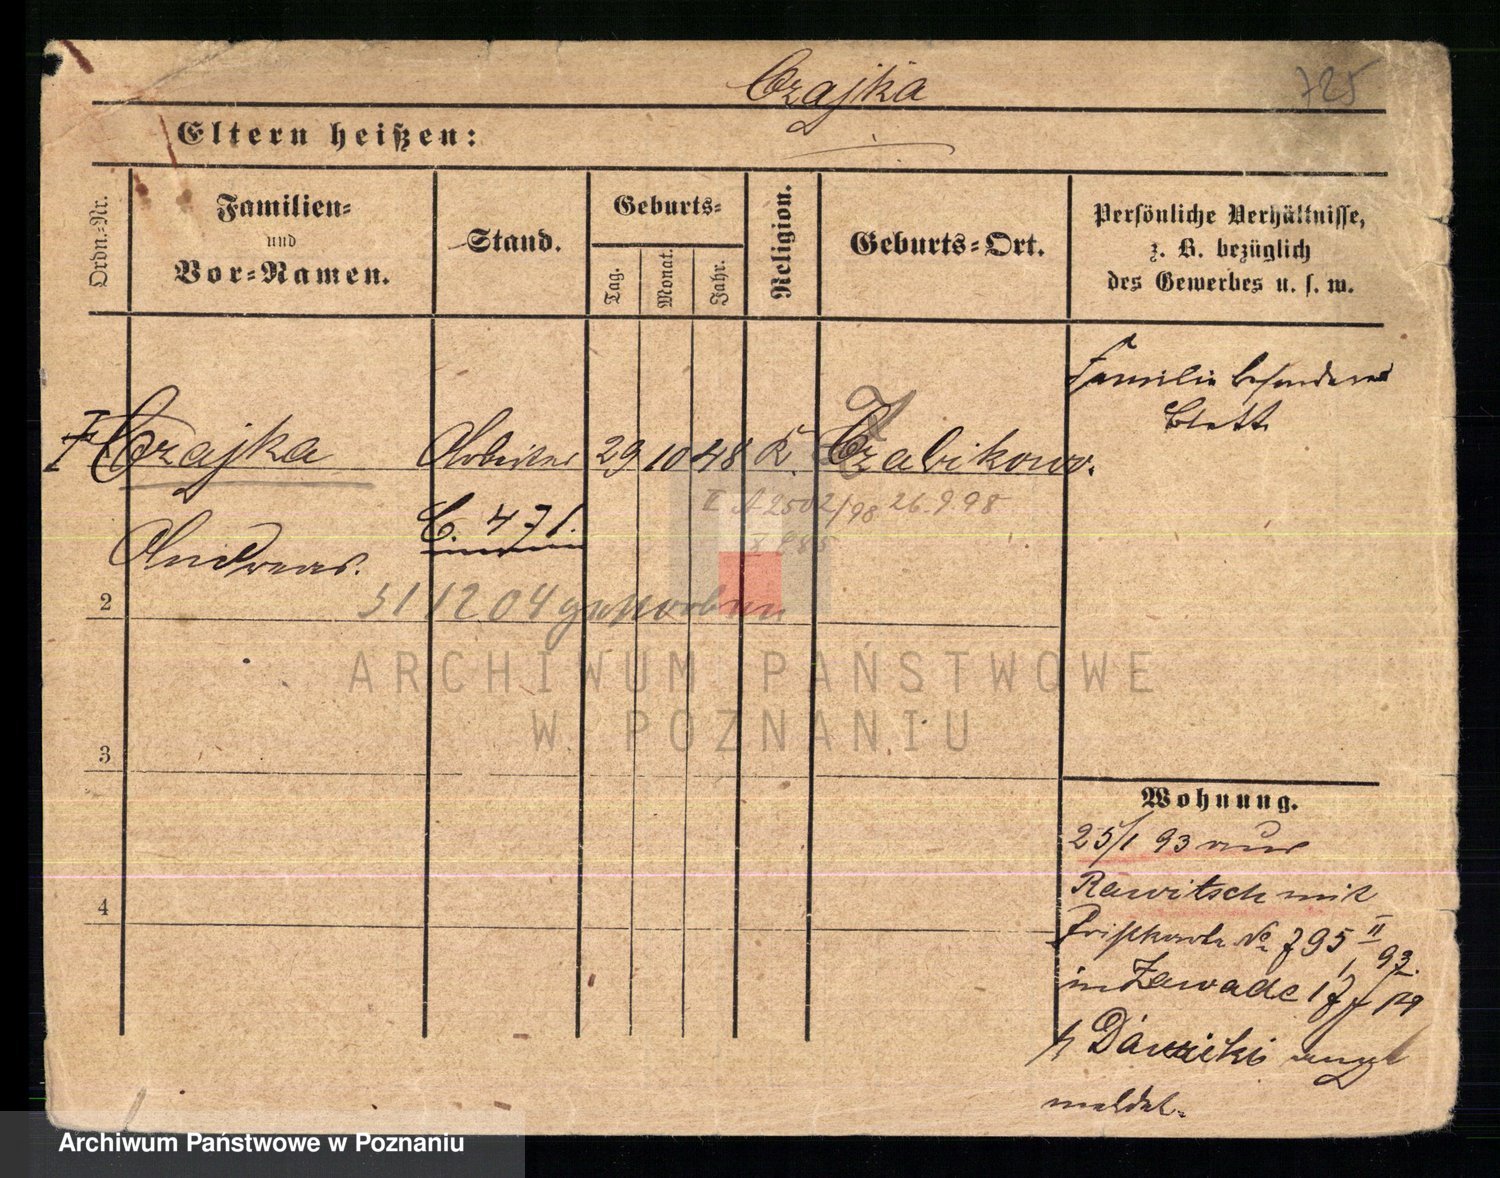 Czajka
725
Eltern heißen:
Ordn.-Nr.
Familien-
und
Vor-Namen.
Stand.
Geburts-
Tag.
Monat.
Jahr.
Religion.
Geburts-Ort.
Persönliche Verhältnisse,
z. B. bezüglich
des Gewerbes u. s. w.
Familie besonderes
Blatt
Czajka Arbeiter 29 10 48 K. Czabikowo.
II A 2502/98 26.9.98
C. 471.
Andreas.
2
31 12 04 gestorben
ARCHIWUM PAŃSTWOWE
W POZNANIU
3
Wohnung.
25/1 93 aus
Rawitsch mit
No 795 II
93.
in Zawade 17
4
meldet.
Archiwum Państwowe w Poznaniu